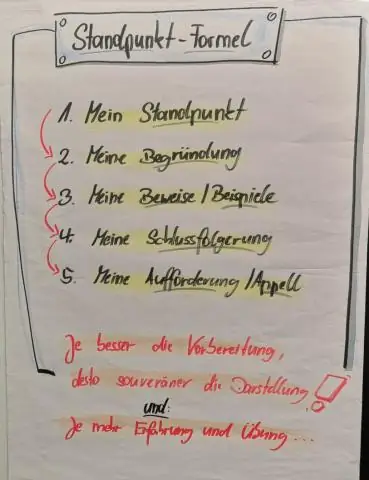 Standpunkt-Formel
1. Mein Standpunkt
2. Meine Begründung
3. Meine Beweise / Beispiele
4. Meine Schlussfolgerung
5. Meine Aufforderung / Appell
Je besser die Vorbereitung,
desto souveräner die Darstellung!
und:
Je mehr Erfahrung und Übung...